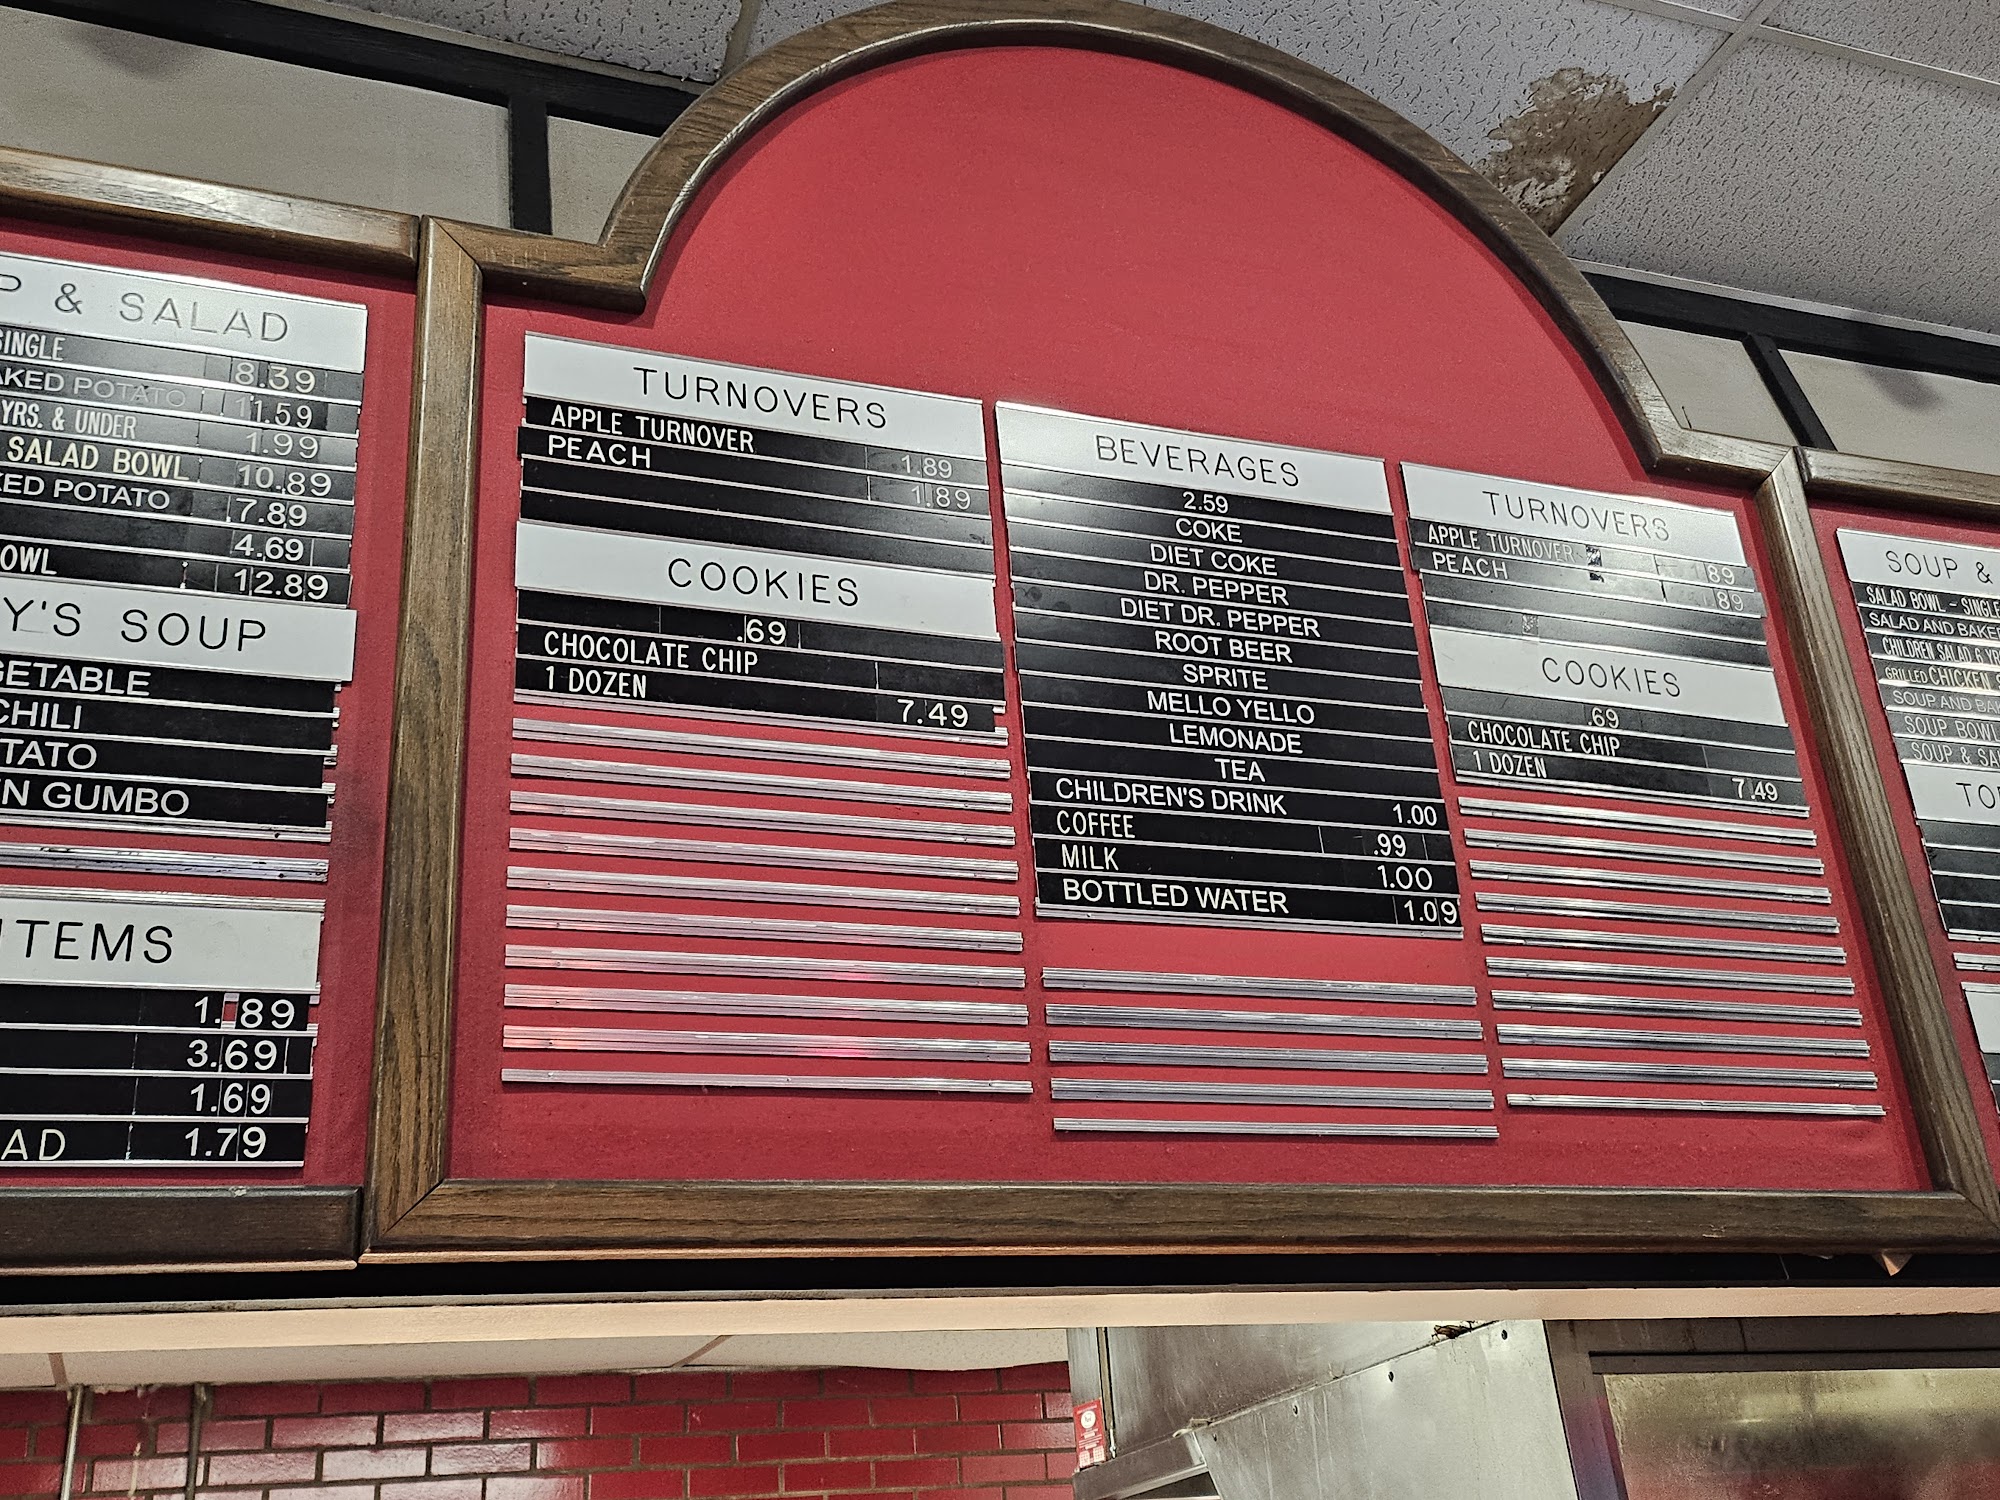 P & SALAD
SINGLE 8.39
AKED POTATO 11.59
YRS. & UNDER 1.99
SALAD BOWL 10.89
ED POTATO 7.89
4.69
OWL 12.89
Y'S SOUP
GETABLE
CHILI
TATO
N GUMBO
ITEMS
1.89
3.69
1.69
AD 1.79
TURNOVERS
APPLE TURNOVER 1.89
PEACH 1.89
COOKIES
.69
CHOCOLATE CHIP
1 DOZEN 7.49
BEVERAGES
2.59
COKE
DIET COKE
DR. PEPPER
DIET DR. PEPPER
ROOT BEER
SPRITE
MELLO YELLO
LEMONADE
TEA
CHILDREN'S DRINK 1.00
COFFEE .99
MILK 1.00
BOTTLED WATER 1.09
TURNOVERS
APPLE TURNOVER 1.89
PEACH 1.89
COOKIES
.69
CHOCOLATE CHIP
1 DOZEN 7.49
SOUP &
SALAD BOWL - SINGLE
SALAD AND BAKED
CHILDREN SALAD 6 YR
GRILLED CHICKEN S
SOUP AND BAK
SOUP BOWL
SOUP & SA
TO